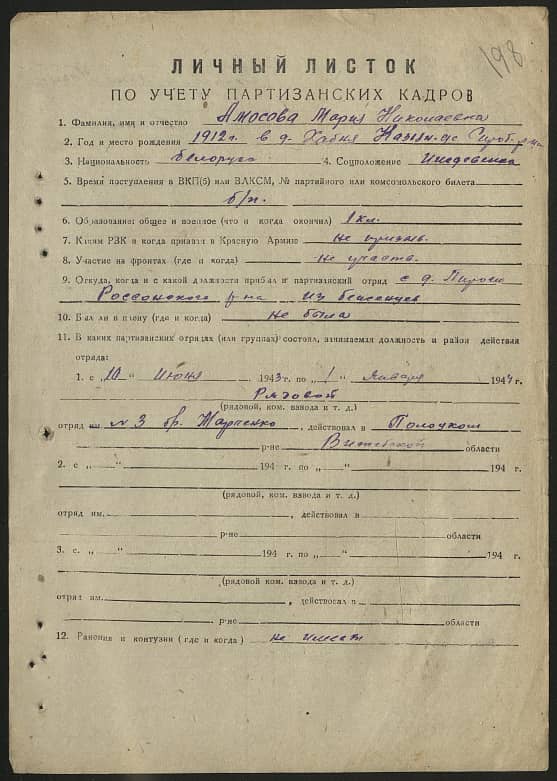 198
ЛИЧНЫЙ ЛИСТОК
ПО УЧЕТУ ПАРТИЗАНСКИХ КАДРОВ
1. Фамилия, имя и отчество Амосова Мария Николаевна
2. Год и место рождения 1912 г. в д.
3. Национальность белорус 4. Соцположение
5. Время поступления в ВКП(б) или ВЛКСМ, № партийного или комсомольского билета
б/п.
6. Образование: общее и военное (что и когда окончил) 1 кл.
7. Каким РВК и когда призван в Красную Армию не призыв.
8. Участие на фронтах (где и когда) не участв.
9. Откуда, когда и с какой должности прибыл в партизанский отряд с д.
Россонского р-на из беженцев
10. Был ли в плену (где и когда) не была
11. В каких партизанских отрядах (или группах) состоял, занимаемая должность и район действия
отряда:
1. с „10" июня 1943 г. по „1" января 1944 г.
Рядовой
(рядовой, ком. взвода и т. д.)
отряд им. №3 бр. , действовал в Полоцком
р-не Витебской области
2. с „ " 194 г. по „ " 194 г.
(рядовой, ком. взвода и т. д.)
отряд им. , действовал в
р-не области
3. с „ " 194 г. по „ " 194 г.
(рядовой, ком. взвода и т. д.)
отряд им. , действовал в
р-не области
12. Ранения и контузии (где и когда) не имеет